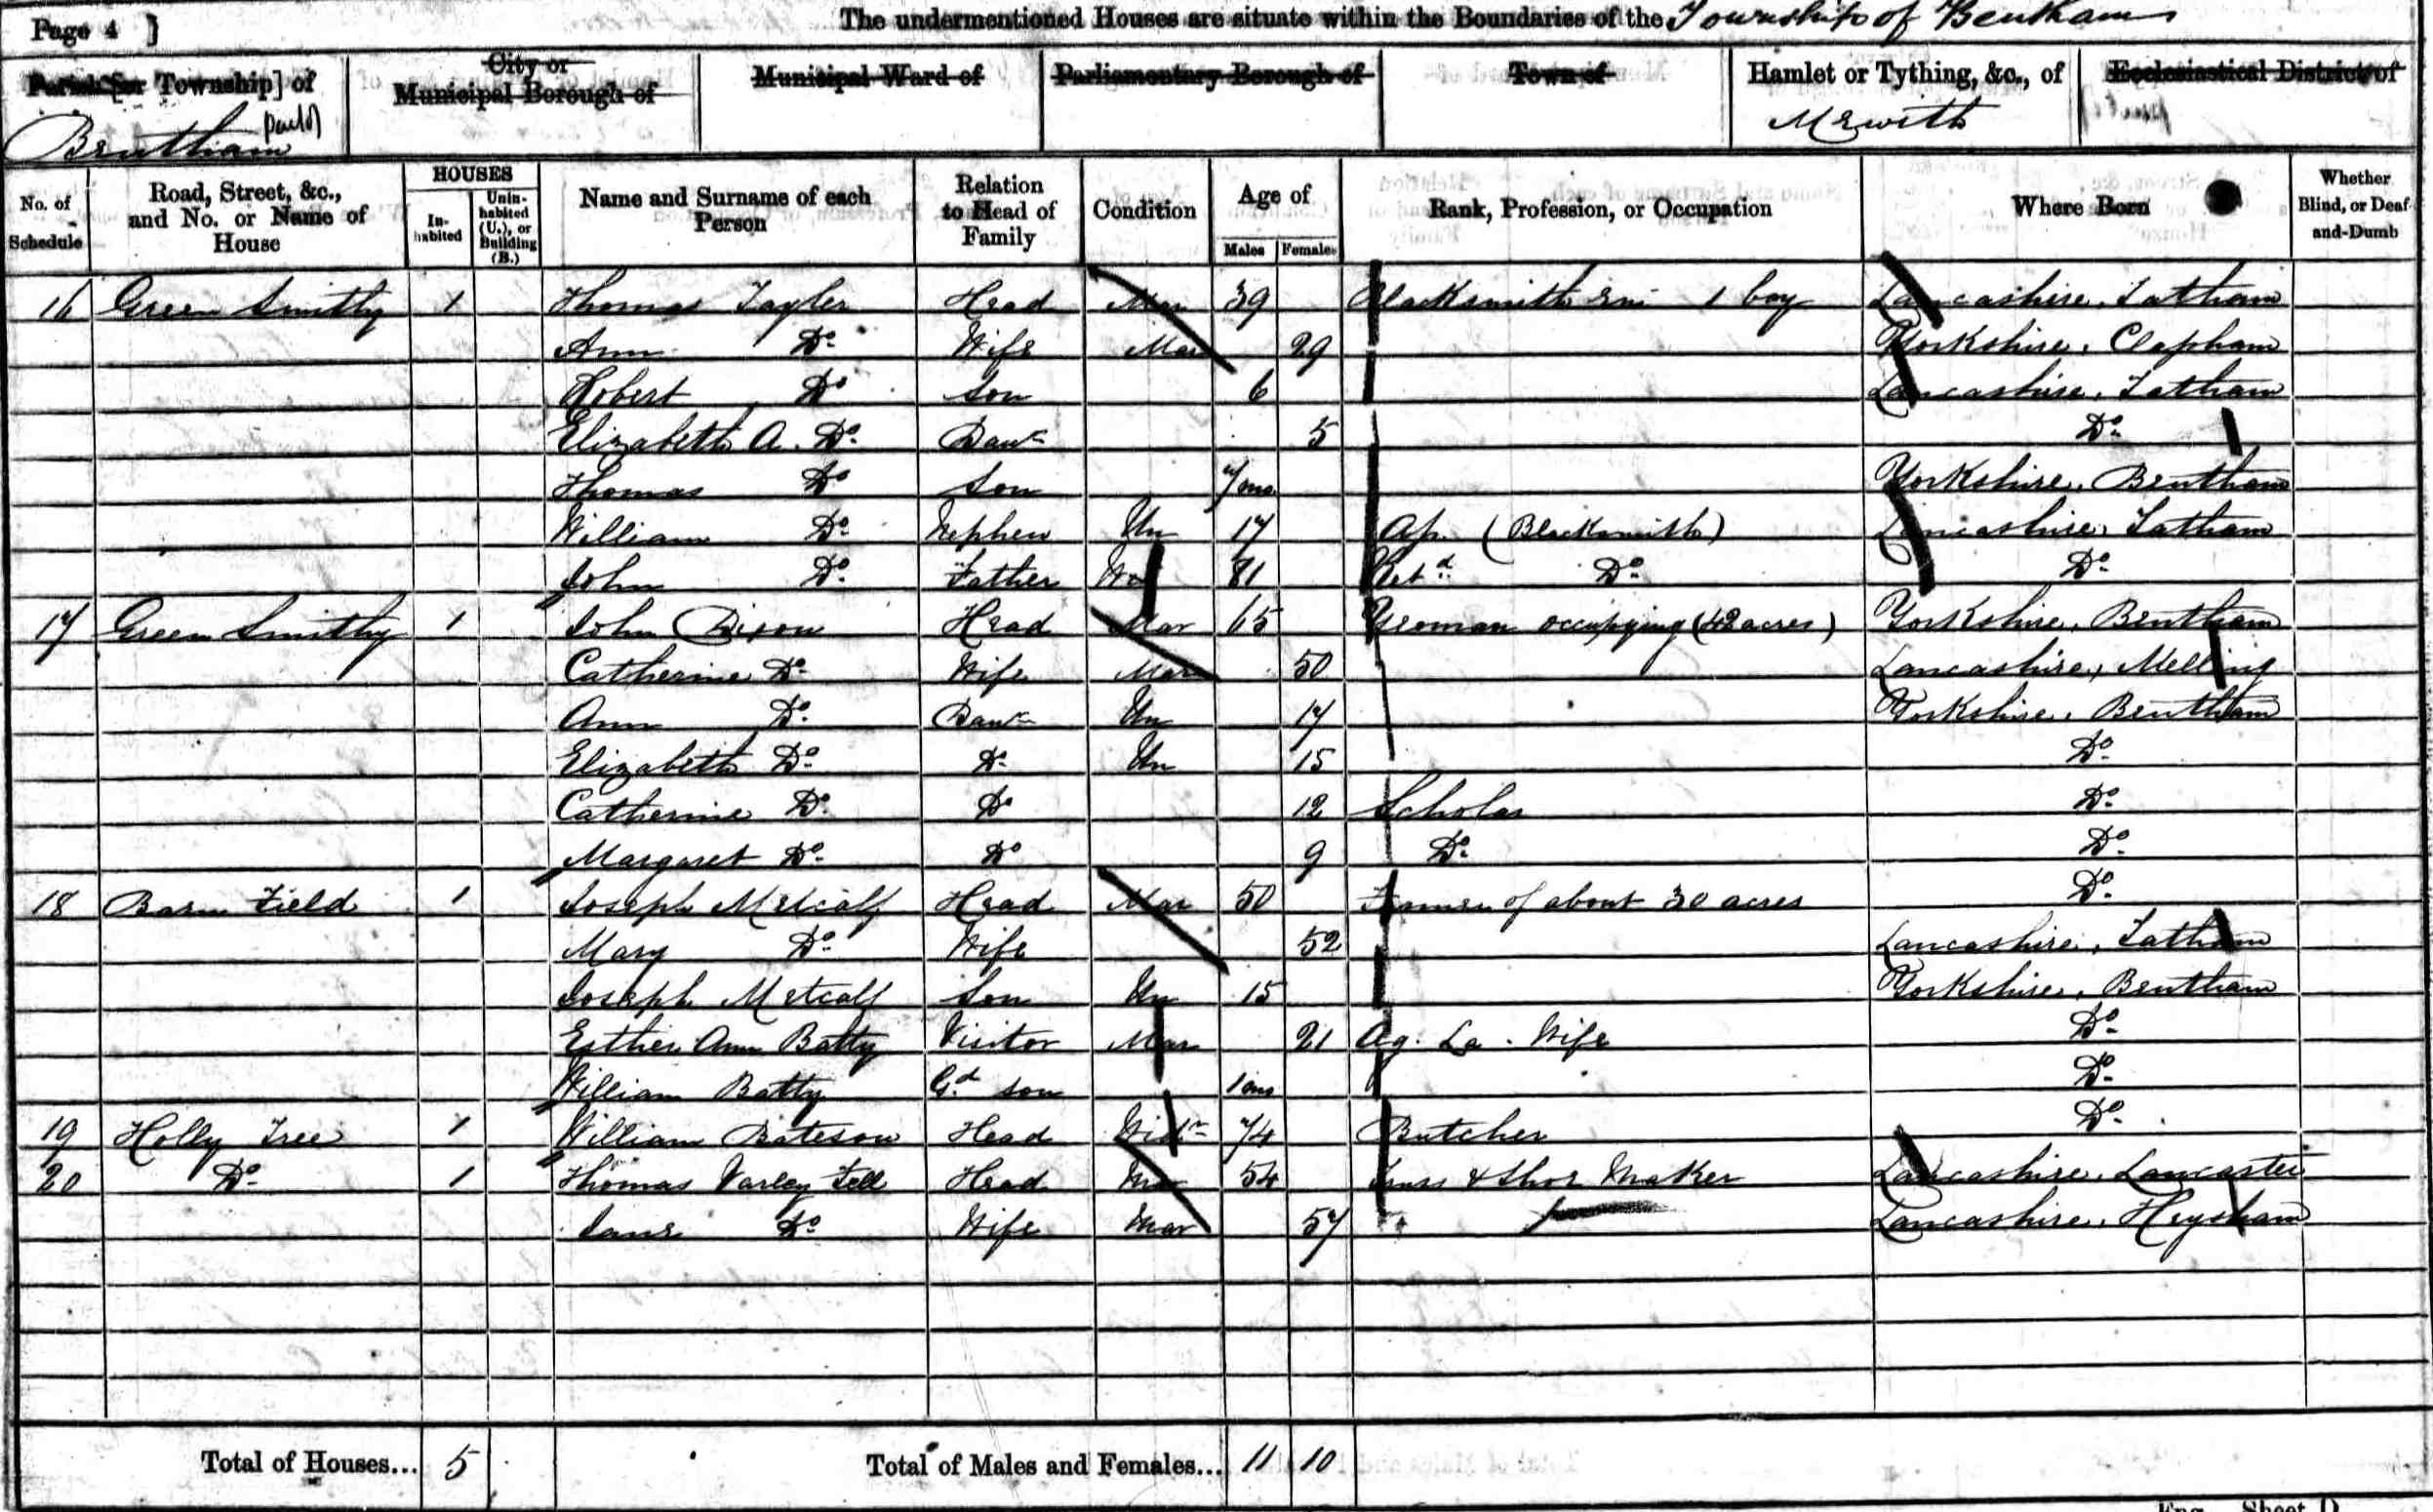 Page 4 ]
The undermentioned Houses are situate within the Boundaries of the Township of Bentham
Parish [or Township] of
Bentham part of
City or Municipal Borough of
Municipal Ward of
Parliamentary Borough of
Town of
Hamlet or Tything, &c., of
Mewith
Ecclesiastical District of
No. of Schedule
Road, Street, &c., and No. or Name of House
HOUSES
In-habited
Unin-habited (U.), or Building (B.)
Name and Surname of each Person
Relation to Head of Family
Condition
Age of
Males
Females
Rank, Profession, or Occupation
Where Born
Whether Blind, or Deaf-and-Dumb
16 Green Smithy 1 Thomas Tayler Head Mar 39 Blacksmith Em 1 boy Lancashire, Tatham
Ann Do. Wife Mar 29 Yorkshire, Clapham
Robert Do Son 6 Lancashire, Tatham
Elizabeth A. Do. Daur 5 Do.
Thomas Do Son 7 mo Yorkshire, Bentham
William Do. Nephew Un 17 Ap. (Blacksmith) Lancashire, Tatham
John Do. Father 81 Retd. Do. Do.
17 Green Smithy 1 John Dixon Head Mar 65 Yeoman occupying (42 acres) Yorkshire, Bentham
Catherine Do. Wife Mar 50 Lancashire, Melling
Ann Do. Daur Un 17 Yorkshire, Bentham
Elizabeth Do. Do. Un 15 Do.
Catherine Do. Do 12 Scholar Do.
Margaret Do. Do 9 Do. Do.
18 Barn Field 1 Joseph Metcalf Head Mar 50 Farmer of about 30 acres Do.
Mary Do. Wife 52 Lancashire, Tatham
Joseph Metcalf Son Un 15 Yorkshire, Bentham
Esther Ann Batty Visitor Mar 21 Ag. La. Wife Do.
William Batty Gd son 1 mo Do.
19 Holly Tree 1 William Bateson Head Widr 74 Butcher Do.
20 Do. 1 Thomas Varley Fell Head Mar 54 Truss & Shoe Maker Lancashire, Lancaster
Jane Do Wife Mar 57 Lancashire, Heysham
Total of Houses... 5
Total of Males and Females... 11 10
Eng.—Sheet D.